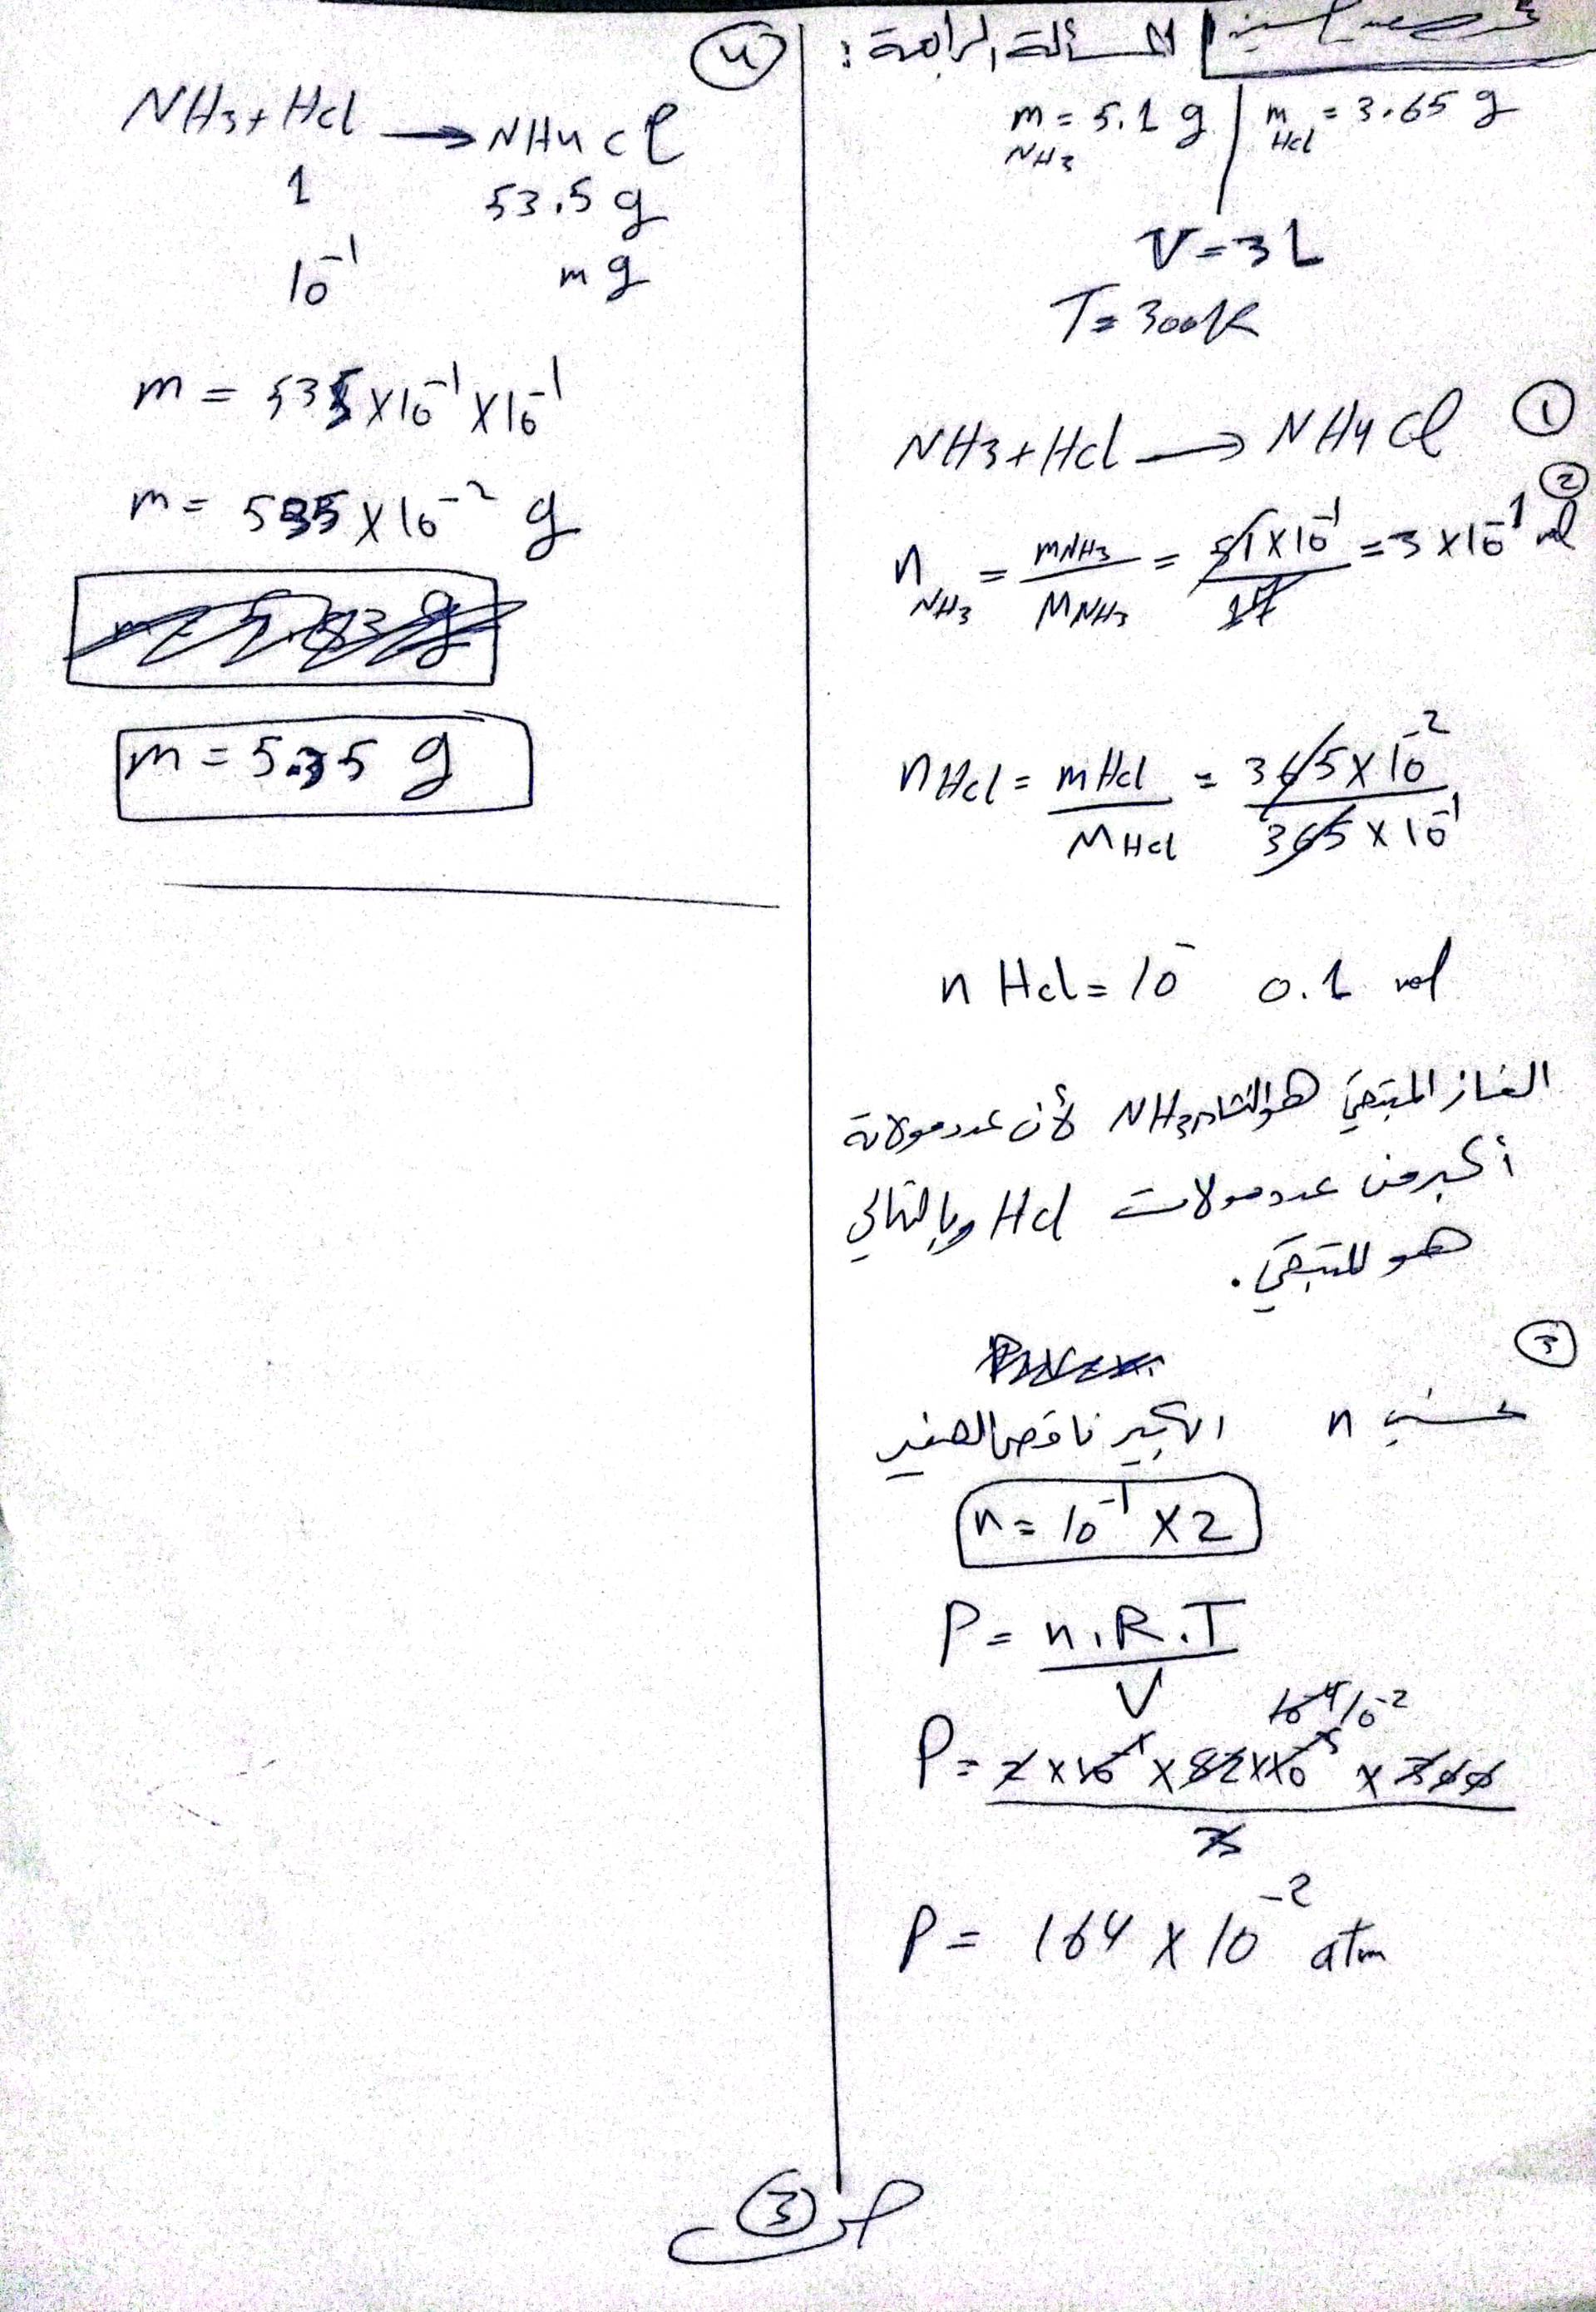 المسألة الرابعة:
m NH3 = 5.1 g | m Hcl = 3.65 g
V = 3 L
T = 300 K
NH3 + Hcl → NH4 Cl ①
②
n NH3 = mNH3 / MNH3 = 51 x 10^-1 / 17 = 3 x 10^-1 mol
n Hcl = m Hcl / M Hcl = 365 x 10^-2 / 365 x 10^-1
n Hcl = 10^- 0.1 mol
الغاز المتبقي هو النشادر NH3 لأن عدد مولاته
أكبر من عدد مولات Hcl وبالتالي
هو المتبقي.
③
n الكبير ناقص الصغير
n = 10^-1 x 2
P = n.R.T / V
10^-4 10^-2
P = 2 x 10^-1 x 82 x 10^-3 x 300 / 3
P = 164 x 10^-2 atm
④
NH3 + Hcl → NH4 cl
1 53.5 g
10^-1 m g
m = 535 x 10^-1 x 10^-1
m = 535 x 10^-2 g
m = 5.35 g
ص ③